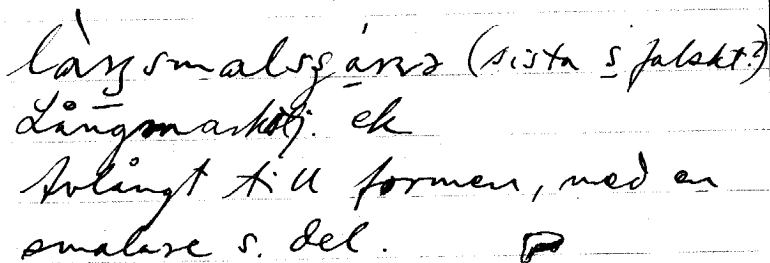 làŋsmalsgánɐ (sista s falskt?)
Långmarkstj. ek
Avlångt till formen, med en
smalare s. del. P